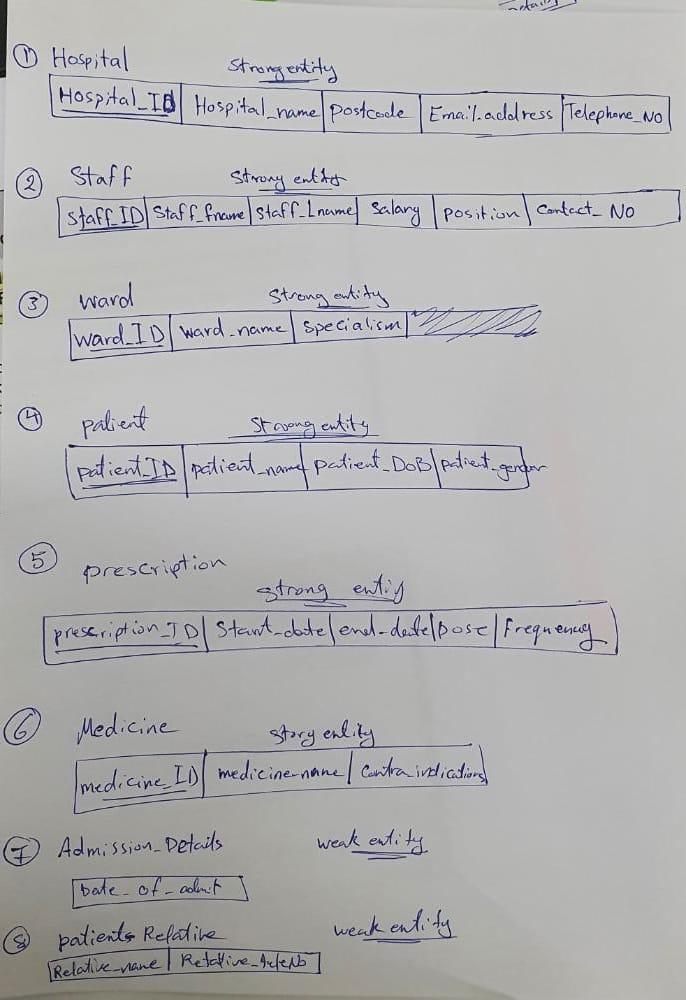 details
① Hospital Strong entity
Hospital_ID | Hospital_name | Postcode | Email.address | Telephone_No
② Staff Strong entity
Staff_ID | Staff_fname | Staff_Lname | Salary | position | Contact_No
③ ward Strong entity
ward_ID | ward_name | Specialism
④ patient Strong entity
patient_ID | patient_name | Patient_DOB | patient_gender
⑤ prescription
strong entity
prescription_ID | Start_date | end_date | Dose | Frequency
⑥ Medicine
medicine_ID | medicine_name | Contraindications
⑦ Admission_Details weak entity
Date_of_admit
⑧ patients Relative weak entity
Relative_name | Relative_